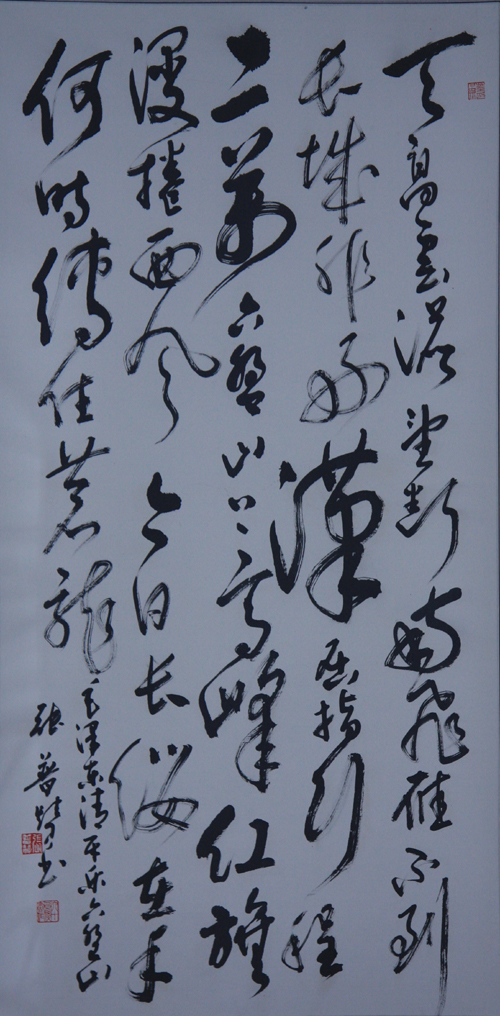 天高雲淡望断南飞雁不到
长城非好汉屈指行程
二萬六盘山上高峰红旗
漫捲西风今日长缨在手
何时缚住苍龙
毛泽东清平乐六盘山
张普书